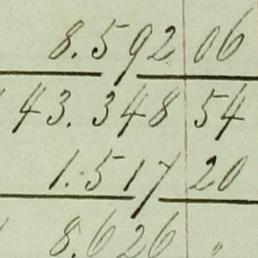 8.592 06
43.348 54
1.517 20
8.626 "